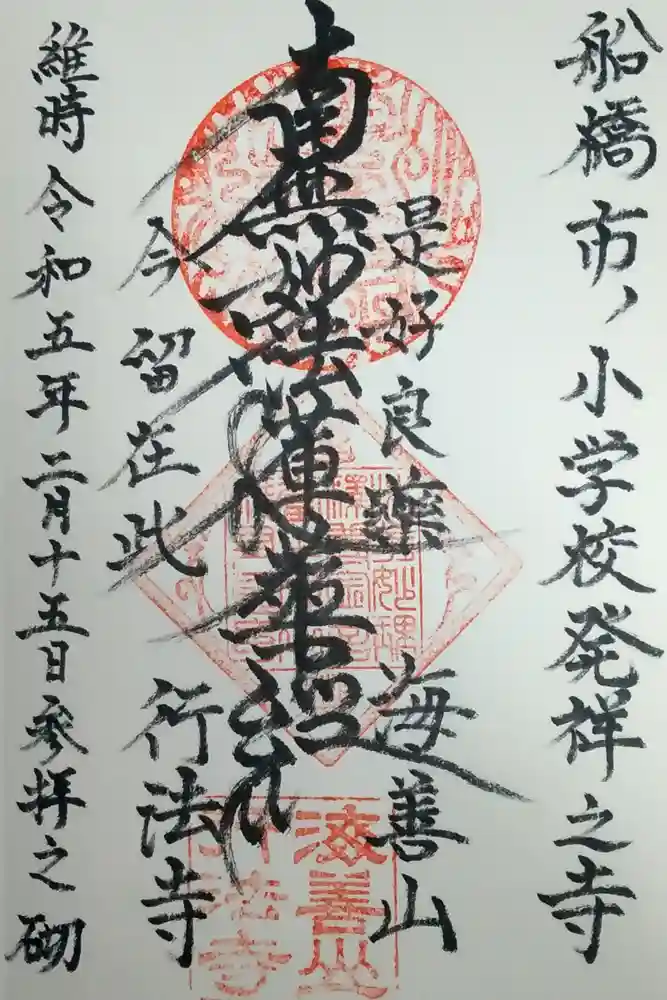 船橋市ノ小学校発祥之寺
是好良薬
海善山
南無妙法蓮華経
今留在此
行法寺
維時令和五年二月十五日参拝之砌
海善山
行法寺